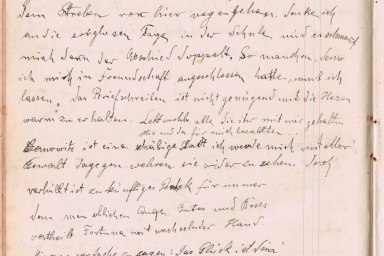 dem Streben von hier wegzugehen. Denke ich
an die sorglosen Tage in der Schule und so schmerzt
mich dann der Abschied doppelt. So manchen, dem
ich mich in Freundschaft angeschlossen hatte, muß ich
lassen, das Briefschreiben ist nicht genügend um die Herzen
warm zu erhalten. Lebt wohl alle, die ihr mit mir gehalten
die und da für mich
ist eine schäbige Stadt ich werde mich mit aller
Gewalt dagegen wehren sie wider zu sehen. Doch
verhüllt ist zukünftiges für immer
dem menschlichen Auge, Gutes und Böses
vertheilt Fortuna mit wechselnder Hand
zu sagen: "Das Glück ist